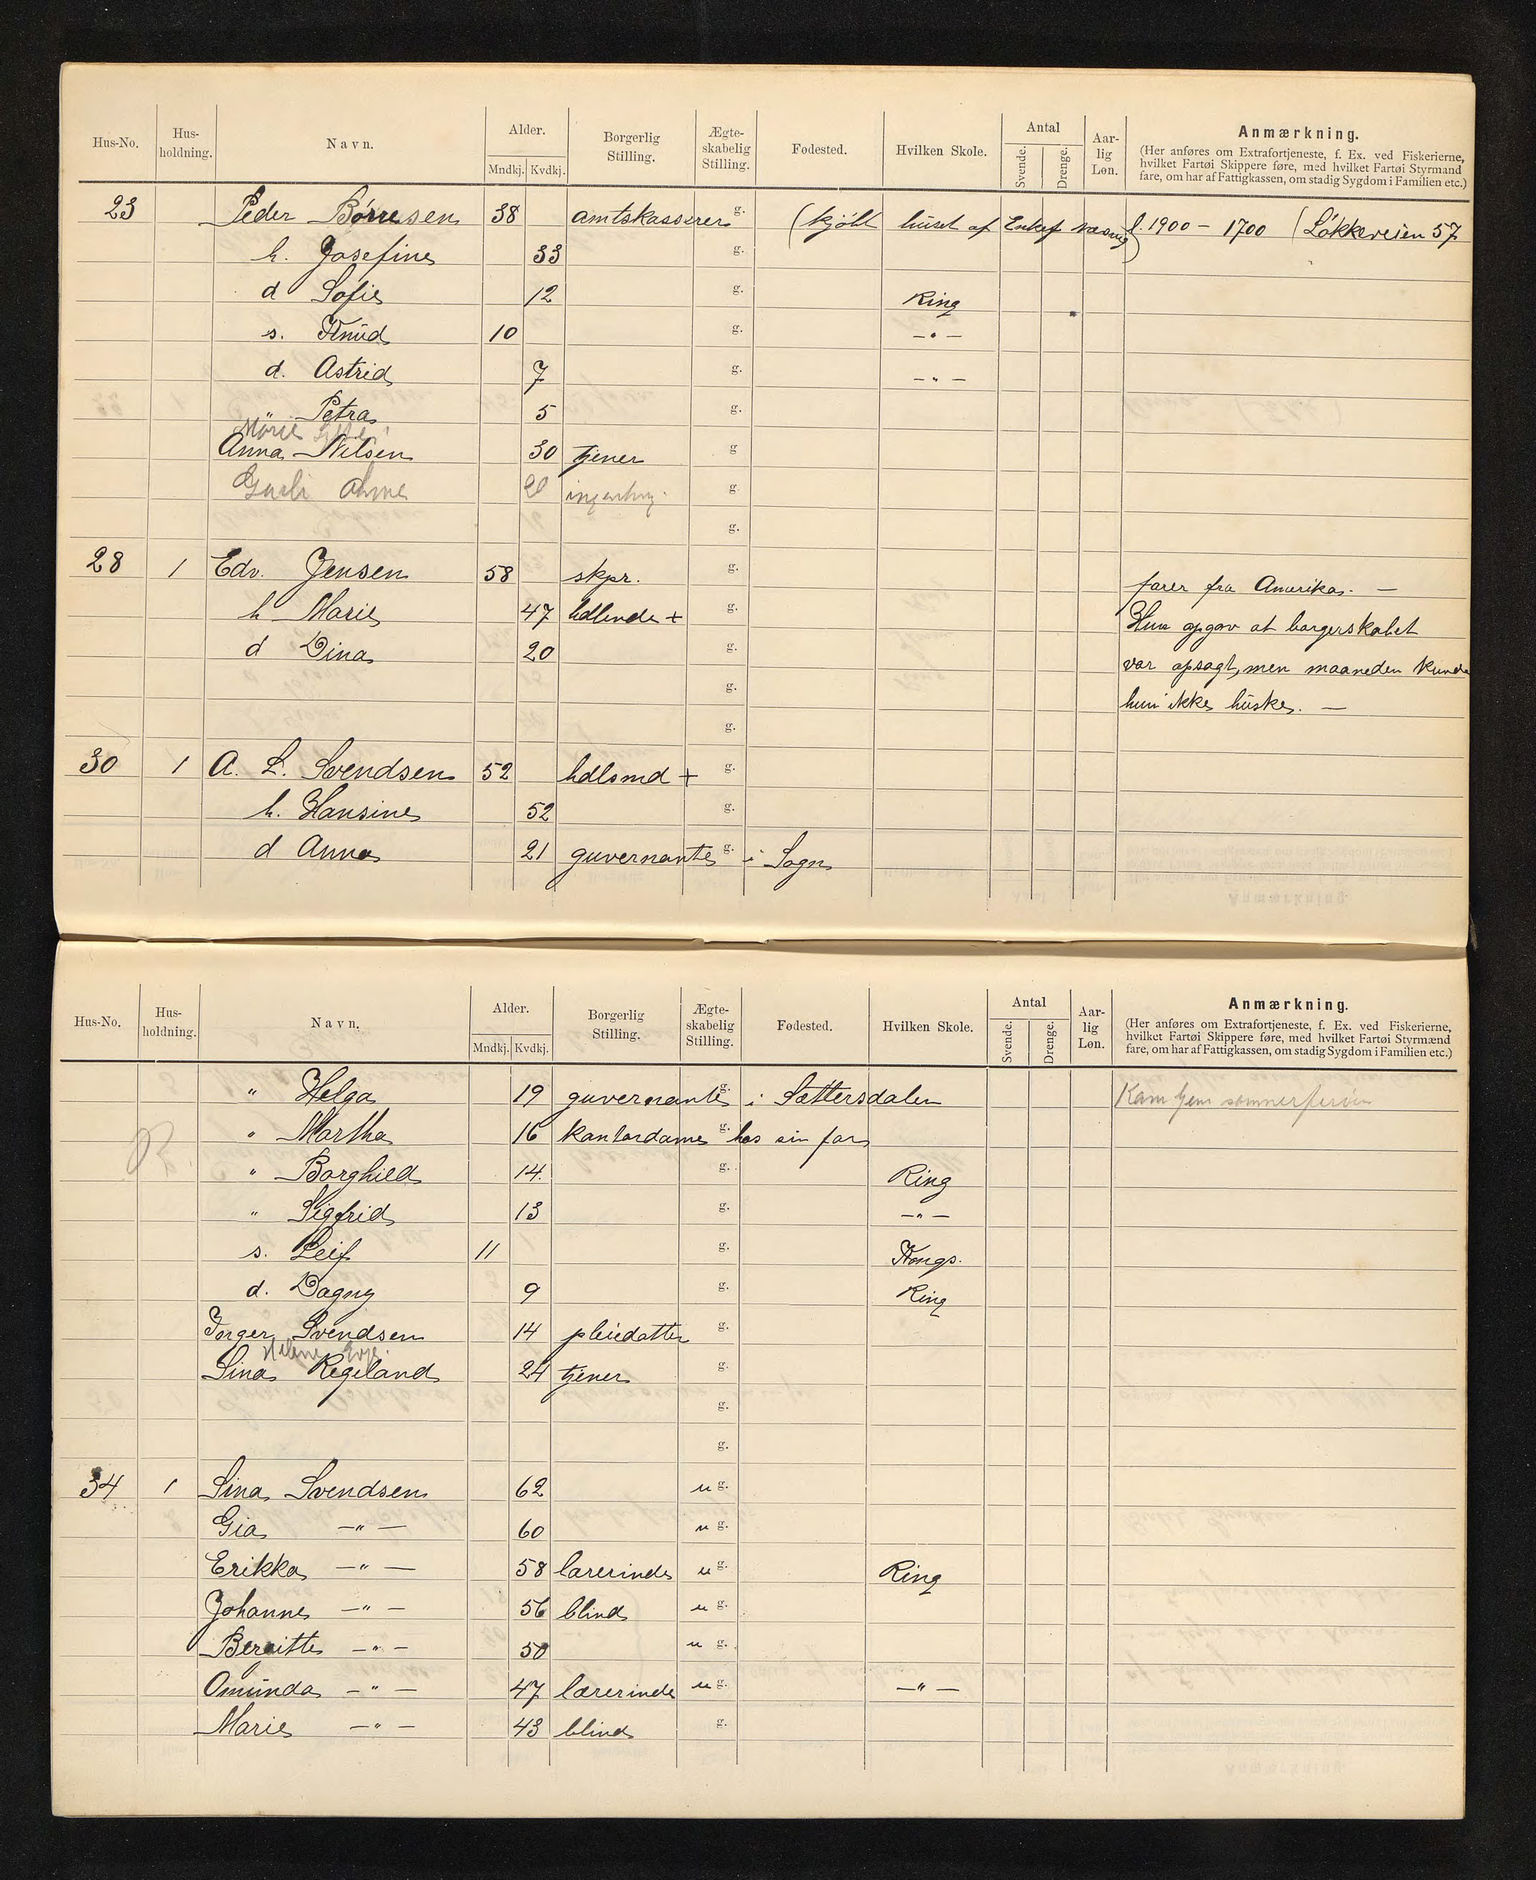 Hus-No. Hus-holdning. Navn. Alder. Mndkj. Kvdkj. Borgerlig Stilling. Ægte-skabelig Stilling. Fødested. Hvilken Skole. Antal Svende. Drenge. Aar-lig Løn. Anmærkning.
(Her anføres om Extrafortjeneste, f. Ex. ved Fiskerierne,
hvilket Fartøi Skippere føre, med hvilket Fartøi Styrmænd
fare, om har af Fattigkassen, om stadig Sygdom i Familien etc.)
23 Peder Børresen 38 amtskasserer g. (kjøbt huset af Enkef f. 1900 – 1700 (Løkkeveien 57
h. Josefine 33 g.
d Sofie 12 g. Ring
s. Knud 10 g. — " —
d. Astrid 7 g. — " —
" Petra 5 g.
Marie
Anna Nilsen 30 tjener g
20 g.
g.
28 1 Edv. Jensen 58 skpr. g. farer fra Amerika. —
h Marie 47 hdlende + g. Hun opgav at borgerskabet
d Dina 20 g. var opsagt, men maaneden kunde
g. hun ikke huske. —
g.
30 1 A. L. Svendsen 52 hdlsmd + g.
h. Hansine 52 g.
d Anna 21 guvernante g. i Sogn
Hus-No. Hus-holdning. Navn. Alder. Mndkj. Kvdkj. Borgerlig Stilling. Ægte-skabelig Stilling. Fødested. Hvilken Skole. Antal Svende. Drenge. Aar-lig Løn. Anmærkning.
(Her anføres om Extrafortjeneste, f. Ex. ved Fiskerierne,
hvilket Fartøi Skippere føre, med hvilket Fartøi Styrmænd
fare, om har af Fattigkassen, om stadig Sygdom i Familien etc.)
" Helga 19 guvernante g. i Sættersdalen Kom hjem sommerferien
" Martha 16 kontordame g. hos sin far
" Borghild 14. g. Ring
" Sigfrid 13 g. — " —
s. Leif 11 g. Kongs.
d. Dagny 9 g. Ring
Svendsen 14 pleiedatter g.
Helene
Sina Regeland 24 tjener g.
g.
g.
34 1 Sina Svendsen 62 u g.
Gia — " — 60 u g.
Erikka — " — 58 lærerinde u g. Ring
Johanne — " — 56 blind u g.
Bergitte — " — 50 u g.
Omunda — " — 47 lærerinde u g. — " —
Marie — " — 43 blind g.